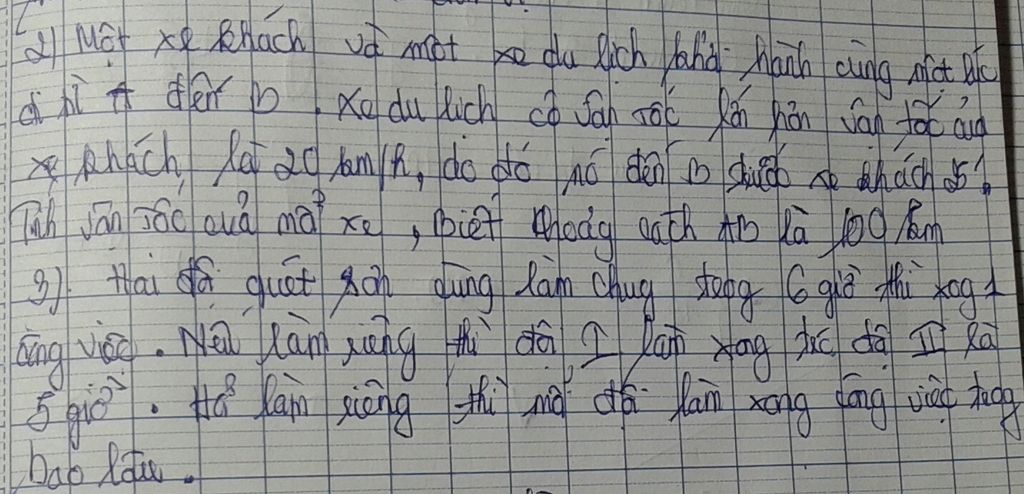 2) Một xe khách và một xe du lịch khởi hành cùng một lúc
đi từ A đến B. Xe du lịch có vận tốc lớn hơn vận tốc của
xe khách là 20 km/h, do đó nó đến B trước xe khách 25'.
Tính vận tốc của mỗi xe, biết khoảng cách AB là 100 km
3) Hai đội quét sơn cùng làm chug trong 6 giờ thì xog 1
công việc. Nếu làm riêng thì đội I làm xong trc đội II là
5 giờ. Hỏi làm riêng thì mỗi đội làm xong công việc trog
bao lâu.